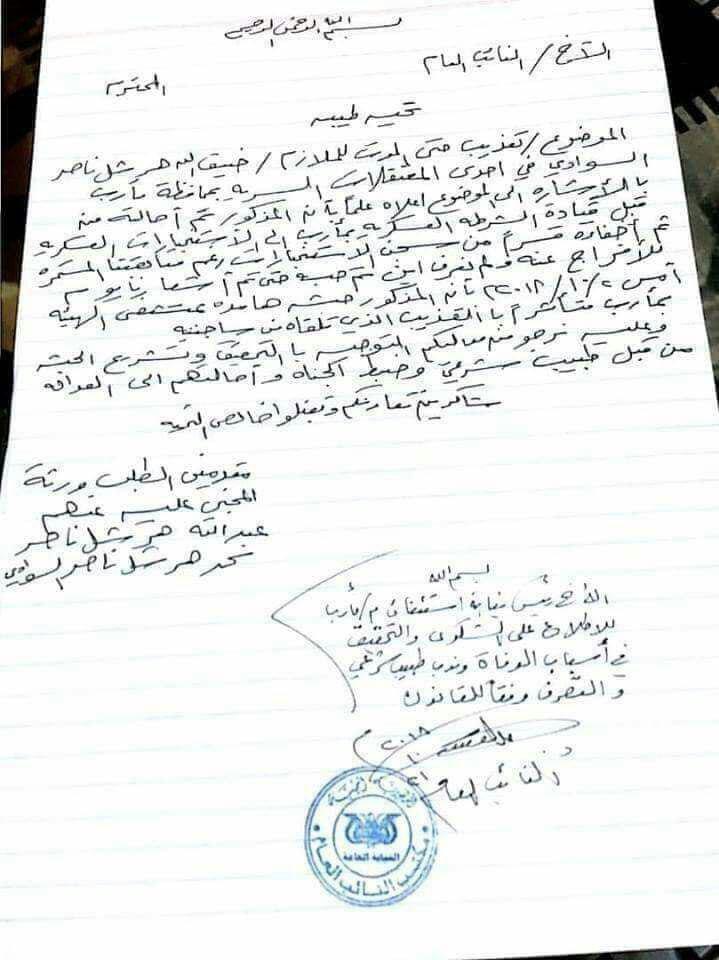 بسم الله الرحمن الرحيم
الأخ / النائب العام المحترم
تحيه طيبه
الموضوع / تعذيب حتى الموت للملازم / ضيف الله هرشل ناصر
السوادي في احدى المعتقلات السريه بمحافظة مأرب
بالأشاره الى الموضوع اعلاه علماً بأنه المذكور تم أحالته من
قبل قيادة الشرطه العسكريه بمأرب الى الاستخبارات العسكريه
ثم أخفاءه قسراً من سجن الاستخبارات رغم متابعتنا المستمره
للأفراج عنه ولم نعرف اين تم حبسه حتى تم أشعارنا يوم
أمس ٢٠١٨/١٠/٢ بأنه المذكور جثه هامده بمستشفى الهيئه
بمأرب متأثرم بالتعذيب الذي تلقاه من ساجنيه
وعليه نرجو من معاليكم التوجيه بالتحقيق وتشريح الجثه
من قبل طبيب شرعي وضبط الجناه وأحالتهم الى العداله
شاكرين تعاونكم وتقبلوا خالص التحيه
مقدمين الطلب ورثة
المجني عليه عنهم
عبدالله هرشل ناصر
هرشل ناصر السوادي
بسم الله
الأخ رئيس نيابة استئناف م/مأرب
للاطلاع على الشكوى والتحقيق
في أسباب الوفاة وندب طبيب شرعي
والتصرف وفقاً للقانون
٢٠١٨م
النائب العام
الجمهورية اليمنية
النيابة العامة
مكتب النائب العام